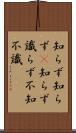 知らず知ら
ず×知らず
識らず不知
不識